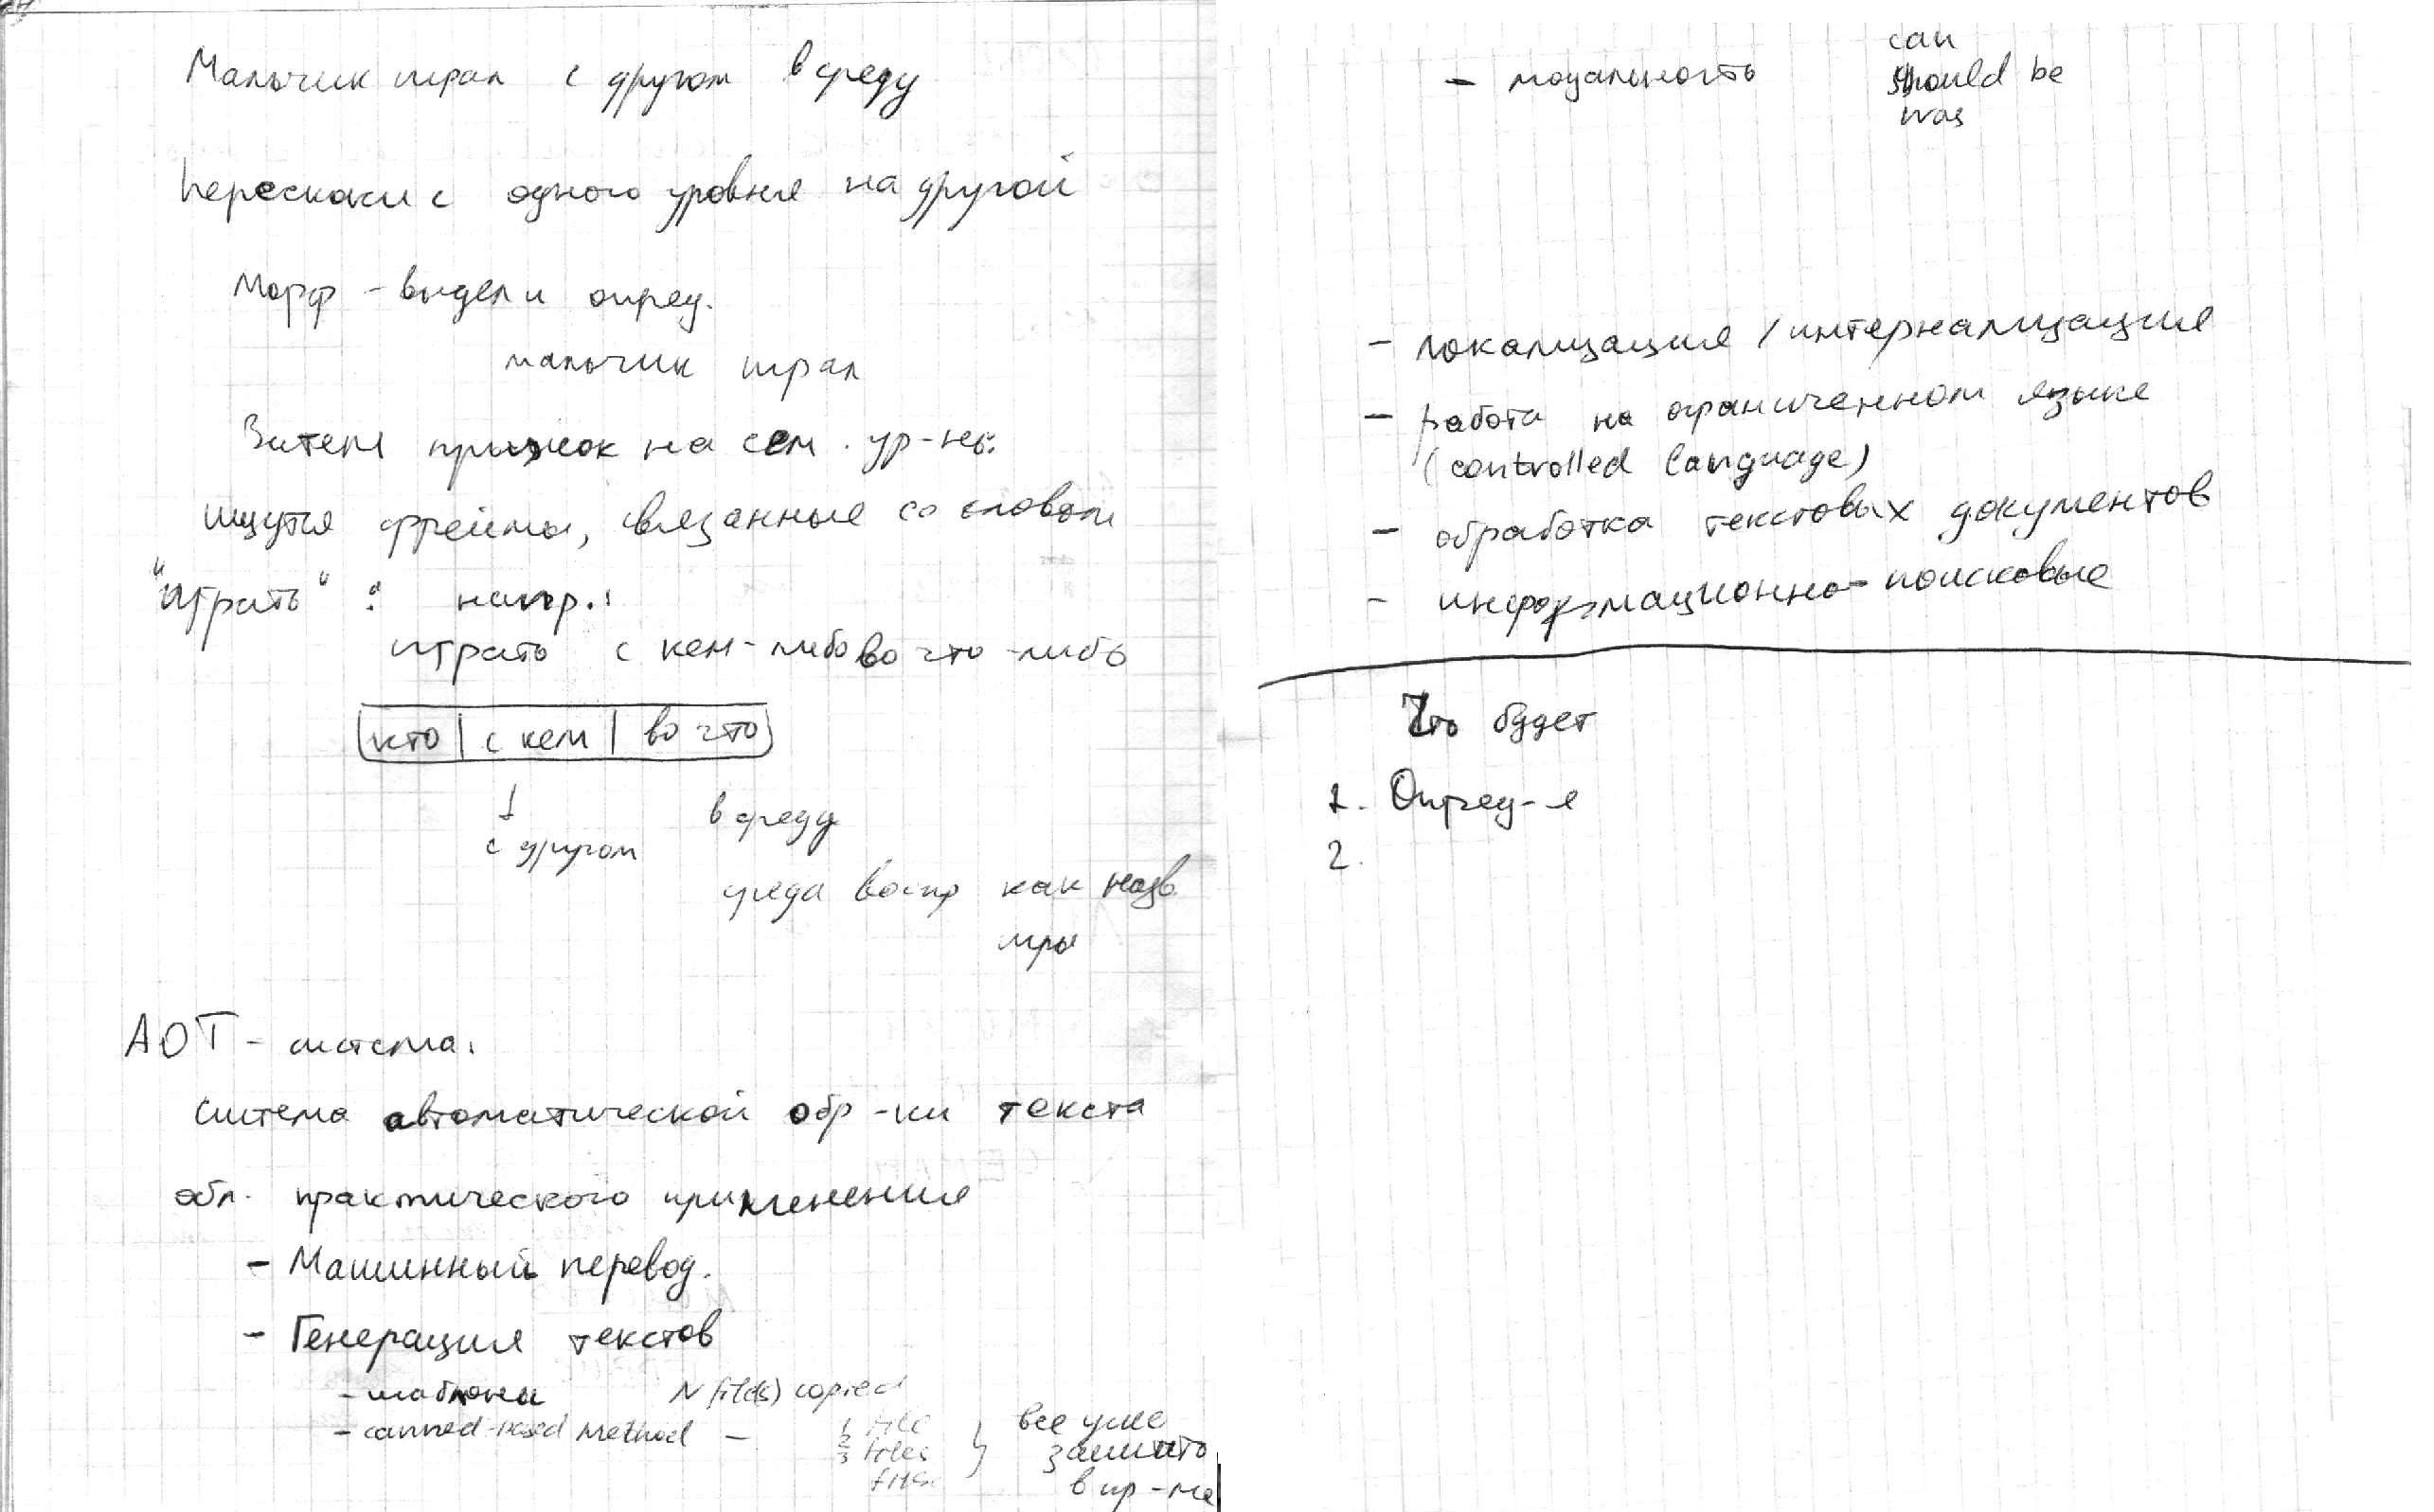 Мальчик играл с другом в среду
Перескоки с одного уровня на другой
Морф - выдели опред.
мальчик играл
Затем прыжок на сем. ур-нь:
ищутся фреймы, связанные со словом
"играть": напр.:
играть с кем-либо во что-либо
кто | с кем | во что
с другом в среду
среда воспр как назв
игры
АОТ - система.
Система автоматической обр-ки текста
обл. практического применения
- Машинный перевод.
- Генерация текстов
- шаблоны N file(s) copied
- canned-based method - 1 file
2 files
3 files
все уже
зашито
в пр-ме
- модальность can
should be
was
- локализация / интернализация
- работа на ограниченном языке
(controlled language)
- обработка текстовых документов
- информационно-поисковые
Что будет
1. Опред-е
2.